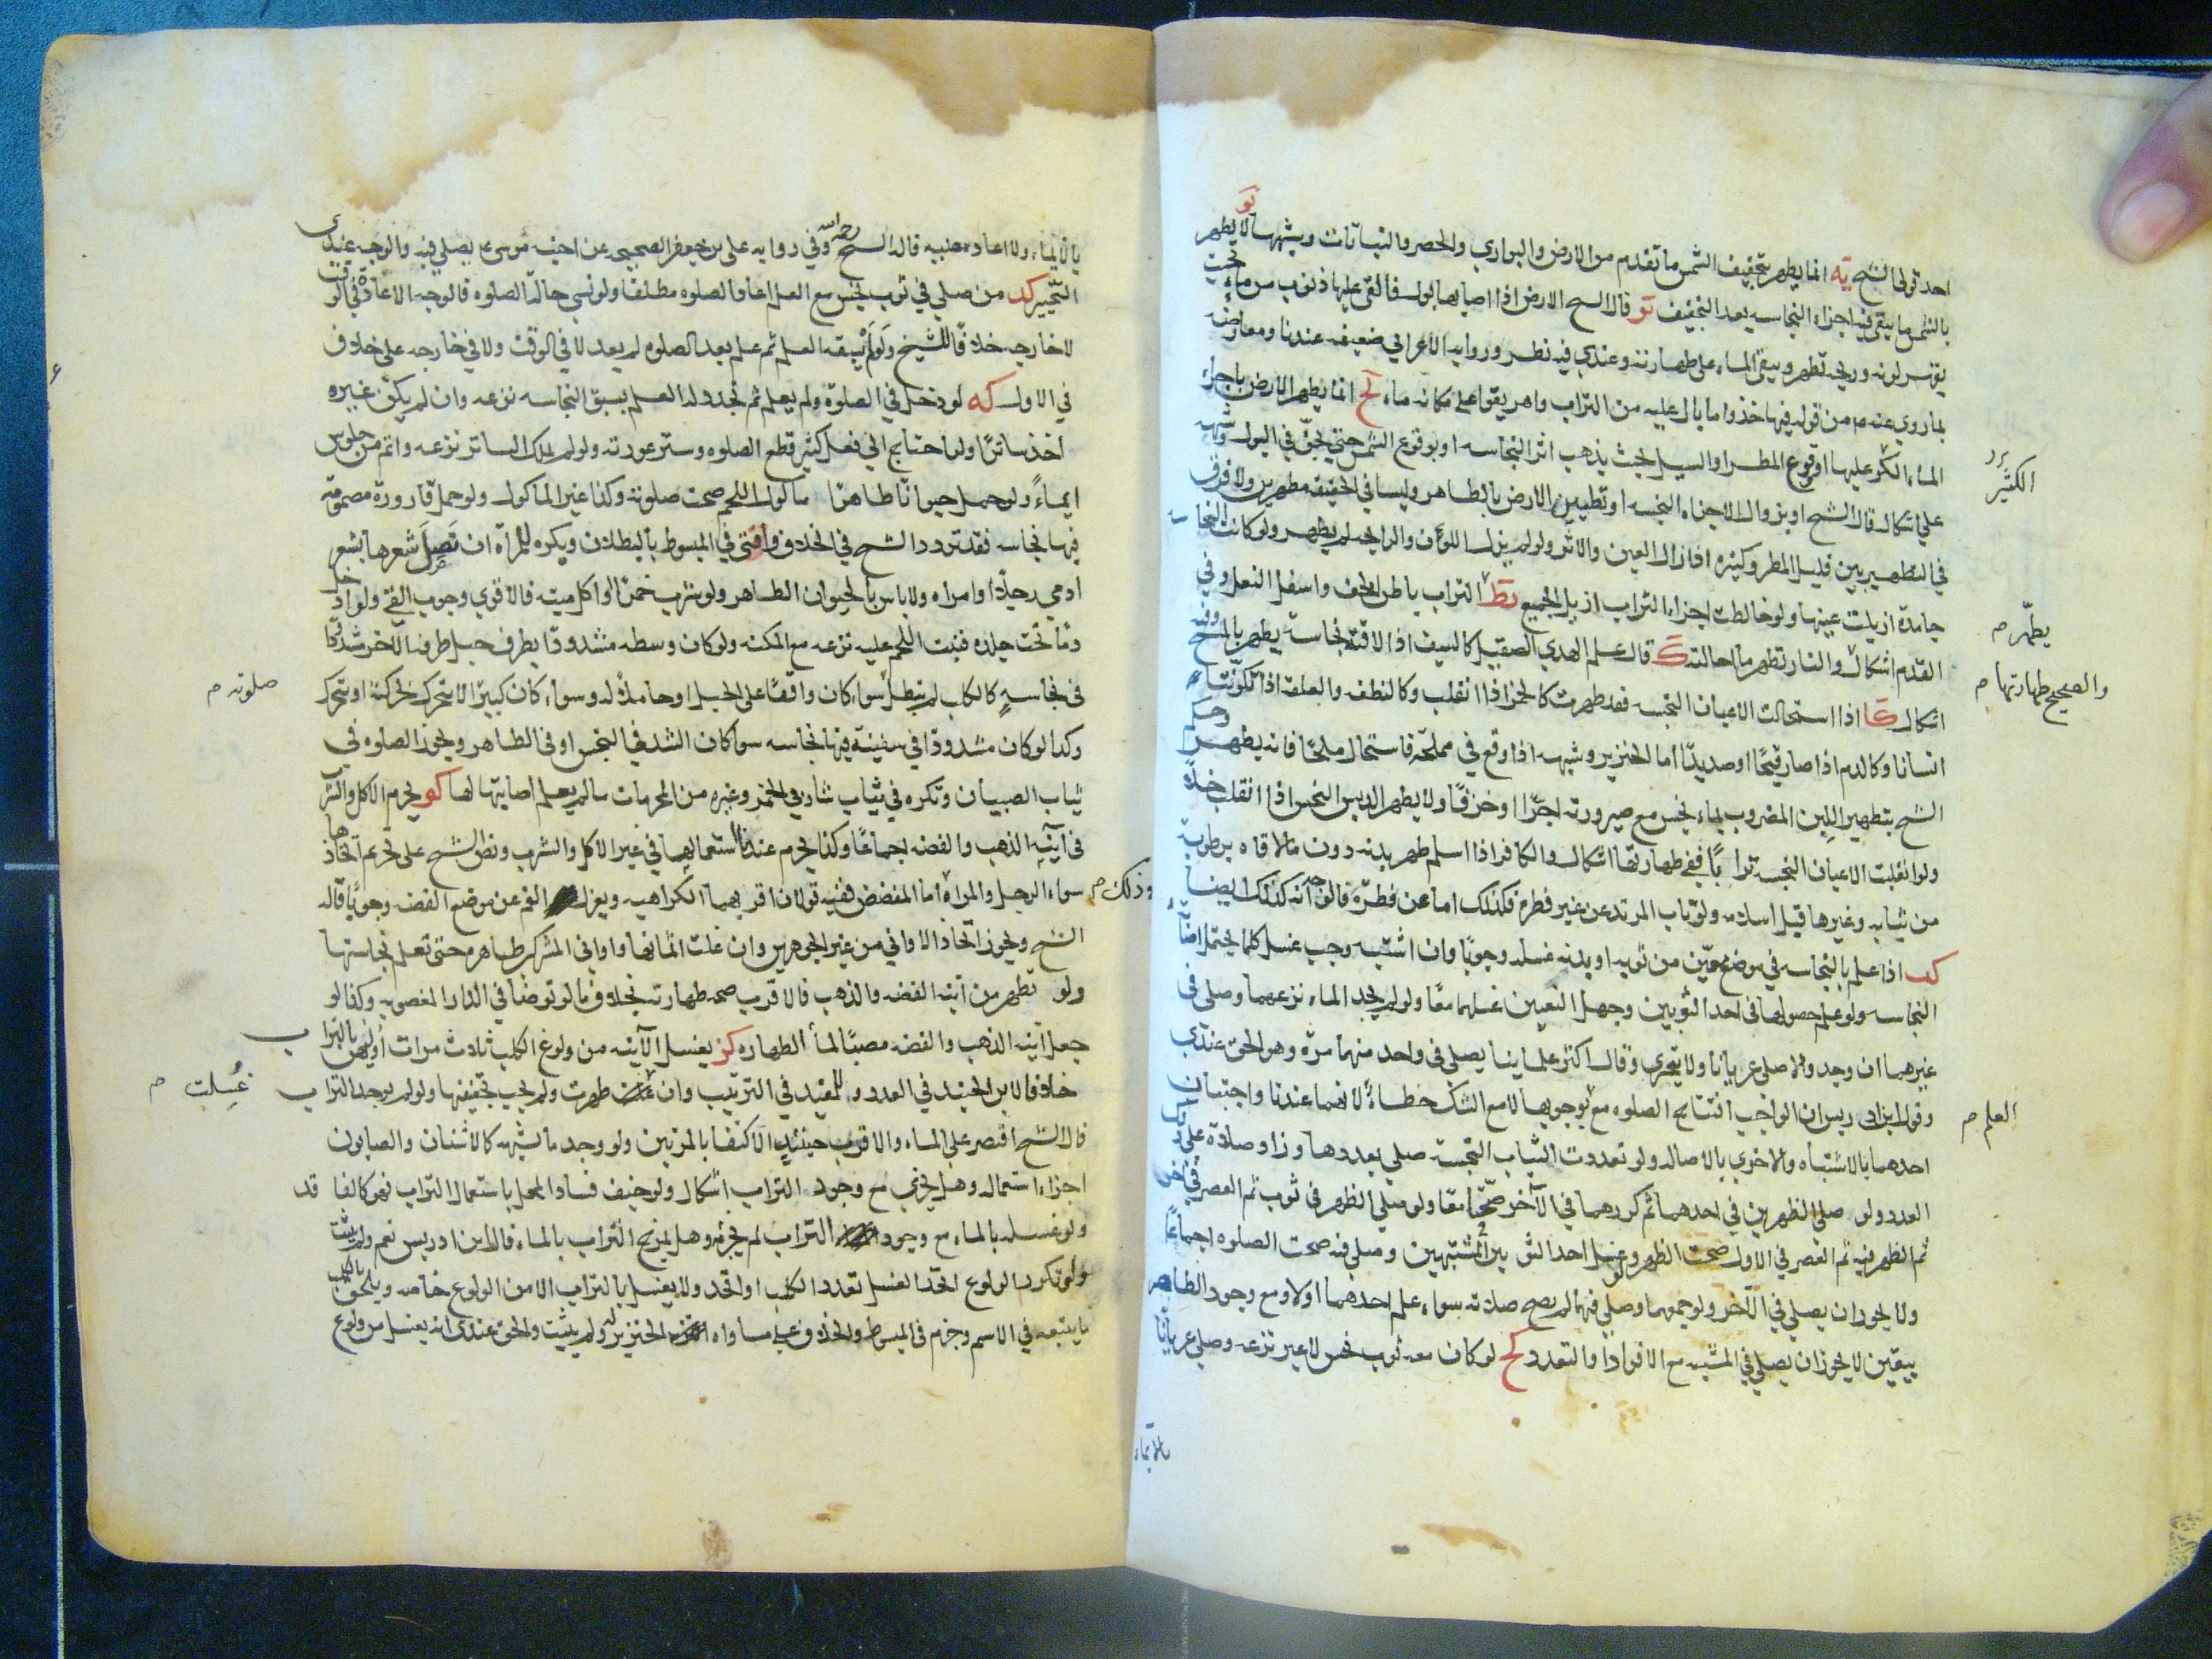 احد قولي الشيخ يه انما يطهر بتجفيف الشمس ما تقدم من الارض والبواري والحصر والنباتات وشبهها لا يطهر
بالشمس ما يبقى فيه اجزاء النجاسه بعد التجفيف يو قال الشيخ الارض اذا اصابها بول فالقي عليها ذنوب من ماء تحت
يقهر لونه وريحه تطهر ويبقى الماء على طهارته وعندي فيه نظر وروايه الاعرابي ضعيفه عندنا ومعارضه
بما روي عنه م من قوله فيها خذوا ما بال عليه من التراب واهريقوا على مكانه ماء يح انما يطهر الارض باجراء
الماء الكر عليها او وقوع المطر او السيل بحيث يذهب اثر النجاسه او بوقوع الشمس حتى يجف في البول وشبهه
الكثير
على اشكال قال الشيخ او بزوال الاجزاء النجسه او تطيين الارض بالطاهر وليسا في الحقيقه مطهرين ولا فرق
في التطهير بين قليل المطر وكثيره اذا زال العين والاثر ولو لم يزل اللون والرايحه لم يطهر ولو كانت النجاسه
جامدة ازيلت عينها ولو خالطت اجزاء التراب ازيل الجميع يط التراب باطن الخف واسفل النعل وفي
يطهّر م
القدم اشكال والنار تطهر ما احالته ك قال علم الهدي الصقيل كالسيف اذا لاقته نجاسة يطهر بالمسح وفيه
والصحيح طهارتها م
اشكال كا اذا استحالت الاعيان النجسه فقد طهرت كالخمر اذا انقلب وكالنطف والعلقه اذا تكونتا
انسانا وكالدم اذا صار قيحًا او صديدًا اما الخنزير وشبهه اذا وقع في مملحه فاستحال ملحًا فانه يطهر وحكم
الشيخ بتطهير اللبن المضروب بماء نجس مع صيرورته اجرًا او خزفًا ولا يطهر الدبس النجس اذا انقلب خلًا
ولو انقلبت الاعيان النجسه ترابًا ففي طهارتها اشكال والكافر اذا اسلم طهر بدنه دون ما لاقاه برطوبة
من ثيابه وغيرها قبل اسلامه ولو تاب المرتد عن غير فطره فكذلك اما عن فطرة فالوجه انه كذلك ايضا
كب اذا علم بالنجاسه في موضع معين من ثوبه او بدنه غسله وجوبًا وان اشتبه وجب غسل كلما يحتمل اصابة
النجاسه ولو علم حصولها في احد الثوبين وجهل التعيين غسلهما معًا ولو لم يجد الماء نزعهما وصلى في
غيرهما ان وجد والا صلى عريانا ولا يتحرى وقال اكثر علماينا يصلى في واحد منهما مرة وهو الحق عندي
وقول ابن ادريس ان الواجب افتتاح الصلوه مع بوجوبها لا مع الشك خطاء لانهما عندنا واجبتان
العلم م
احدهما بالاشتباه والاخرى بالاصاله ولو تعددت الثياب النجسه صلى بعددها وزاد صلاة على ذلك
العدد ولو صلى الظهرين في احدهما ثم كررهما في الآخر صحتا معًا ولو صلى الظهر في ثوب ثم العصر في اخر
ثم الظهر فيه ثم العصر في الاول صحت الظهر ولو غسل احد الثوبين المشتبهين وصلى فيه صحت الصلوه اجماعًا
ولا يجوز ان يصلي في الآخر ولو جمعهما وصلى فيهما لم يصح صلاته سواء علم احدهما اولا ومع وجود الطاهر
بيقين لا يجوز ان يصلي في المشتبه مع الافراد والتعدد كج لو كان معه ثوب نجس لا غير نزعه وصلى عريانًا
بالايماء
بالايماء ولا اعاده عليه قاله الشيخ رحمه الله وفي روايه على بن جعفر الصحيحه عن اخيه موسى م يصلي فيه والوجه عندي
التخيير كد من صلى في ثوب نجس مع العلم اعاد الصلوه مطلقا ولو نسي حالة الصلوه فالوجه الاعادة في الوقت
لا خارجه خلافًا للشيخ ولو لم يسبقه العلم ثم علم بعد الصلوه لم يعد لا في الوقت ولا في خارجه على خلاف
في الاول كه لو دخل في الصلوة ولم يعلم ثم تجدد له العلم بسبق النجاسه نزعه وان لم يكن غيره
اخذ ساترًا ولو احتاج الى فعل كثير قطع الصلوه وستر عورته ولو لم يملك الساتر نزعه واتم من جلوس
ايماءً ولو حمل حيوانًا طاهرًا ماكول اللحم صحت صلوته وكذا غير الماكول ولو حمل قارورة مصمومة
فيها نجاسه فقد تردد الشيخ في الخلاف وافتى في المبسوط بالبطلان ويكره للمراة ان تصل شعرها بشعر
ادمي رجلًا او امراه ولا باس بالحيوان الطاهر ولو شرب خمرًا او اكل ميته فالاقرى وجوب القئ ولو ادخل
دمًا تحت جلده فنبت اللحم عليه نزعه مع المكنه ولو كان وسطه مشدودًا بطرف حبل طرفه الاخر مشدودًا
في نجاسة كالكلب لم تبطل سواء كان واقفًا على الحبل او حاملًا له وسواء كان كبيرًا لا يتحرك بحركته او يتحرك
صلوته م
وكذا لو كان مشدودًا في سفينة فيها نجاسه سواكان الشد في النجس او في الطاهر ويجوز الصلوه في
ثياب الصبيان وتكره في ثياب شاربي الخمر وغيره من المحرمات ما لم يعلم اصابتها لها كو يحرم الاكل والشرب
في آنية الذهب والفضه اجماعًا وكذا يحرم عندنا استعمالها في غير الاكل والشرب ونص الشيخ على تحريم اتخاذها
وذلك م
سواء الرجل والمراه اما المفضض ففيه قولان اقربهما الكراهيه ويعزل الفم عن موضع الفضه وجوبًا قاله
الشيخ ويجوز اتخاذ الاواني من غير الجوهرين وان غلت اثمانها واواني المشرك طاهره حتى تعلم نجاستها
ولو تطهر من آنيه الفضه والذهب فالاقرب صحه طهارته بخلاف ما لو توضا في الدار المغصوبه وكذا لو
جعل آنيه الذهب والفضه مصبًا لماء الطهاره كز يغسل الآنيه من ولوغ الكلب ثلاث مرات اولهن بالتراب
خلافا لابن الجنيد في العدد وللمفيد في الترتيب وان طهرت ولم يجب تجفيفها ولو لم يوجد التراب
غُسِلت م
قال الشيخ اقتصر على الماء والاقرب حينئذ الاكتفا بالمرتين ولو وجد ما يشبهه كالاشنان والصابون
اجزاء استعماله وهل يجزي مع وجود التراب اشكال ولو خيف فساد المحل باستعمال التراب فهو كالفاقد
ولو غسله بالماء مع وجود التراب لم يجزئه وهل يمزج التراب بالماء قال ابن ادريس نعم ولم يثبت
ولو تكرر الولوغ اتحد الغسل تعدد الكلب او اتحد ولا يغسل بالتراب الا من الولوغ خاصه ويلحق بالكلب
ما يتبعه في الاسم وجزم في المبسوط والخلاف على مساواه الخنزير له ولم يثبت والحق عندي انه يغسل من ولوغ